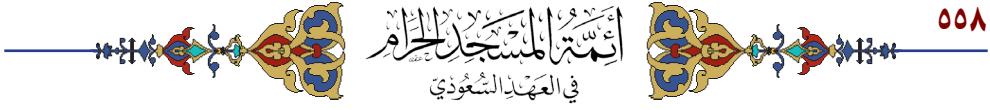 ٥٥٨
أَئِمَّةُ المَسْجِدِ الحَرَامِ
فِي العَهْدِ السُّعُودِيّ